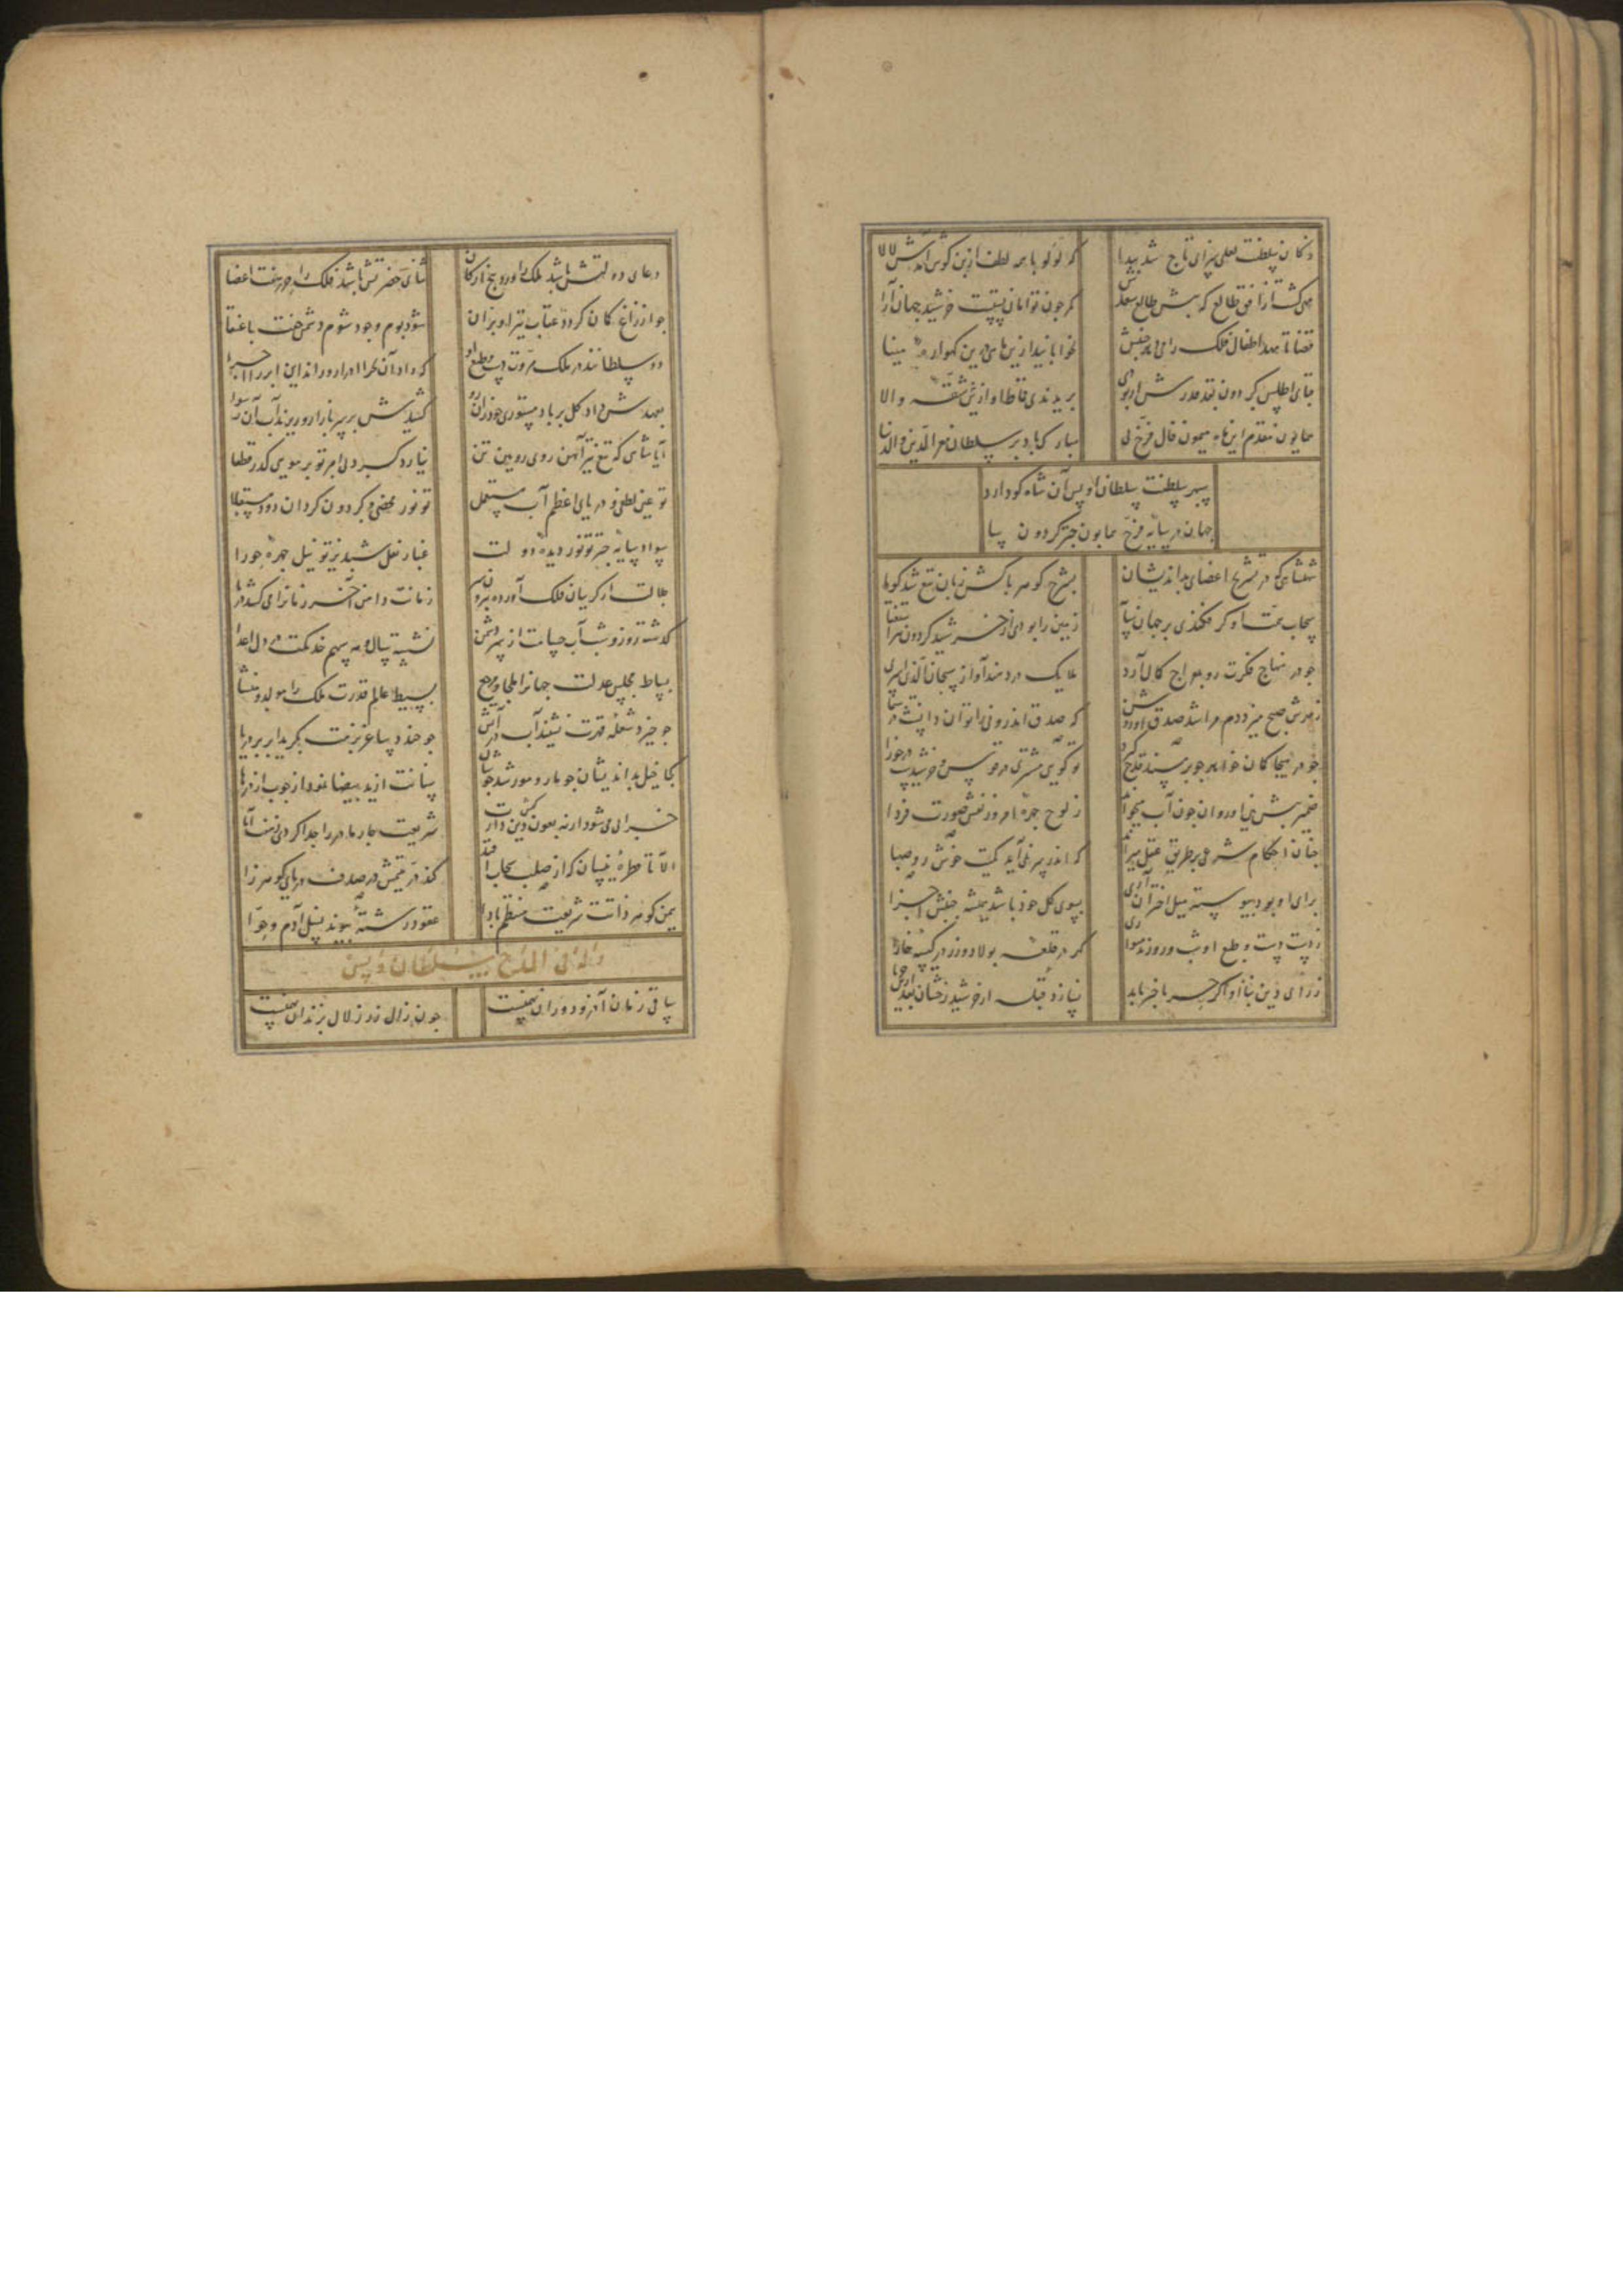 ز کان سلطنت لعلی سزای تاج شد پیدا
که لولو با همه لطف از بن گوش آمدش لالا
مهی گشت از افق طالع که پیش طالع سعدش
کمر چون توامان بست خورشید جهان آرا
قضا تا مهد اطفال فلک را می‌دهد جنبش
نخوابانید ازین ماهی درین گهواره مینا
قبای اطلس گردون بقد قدرش ار بودی
بریدندی قماط او ازین شقه والا
همایون مقدم این ماه میمون فال فرخ پی
مبارک باد بر سلطان معز الدین و الدنیا
سپهر سلطنت سلطان اویس آن شاه کو دارد
جهان در سایه فرخ همایون چتر گردون سا
شهنشاهی که در تشریح اعضای بداندیشان
بشرح گوهر پاکش زبان تیغ شد گویا
سحاب همت او گر فکندی بر جهان سایه
زمین را بودی از خورشید گردون
چو در منهاج فکرت رو بمعراج کمال آرد
ملایک در دمند آواز سبحان الذی اسری
ز مهرش صبح میزد دم مرا شد صدق او روشن
که صدق اندرونی را توان دانست در سیما
چو در هیجا کمان خواهد چو بر بندد
تو گویی مشتری در قوس و خورشیدست در جوزا
ضمیرش پیش بین او روان چون آب میخواند
ز لوح چهره امروز نقش صورت فردا
چنان احکام شرعی بر طریق عقل میراند
که اندر سر نمی‌آید کمیت خوش رو صهبا
برای او بود پیوسته میل اختران آری
بسوی کل خود باشد همیشه جنبش اجزا
ز دست و طبع او شب و روز
کمر در قلعه پولاد و زر در کیسه خارا
ز رای دین پناه او اگر چه با خبر یابد
نیازد قبله از خورشید رخشان بعد ازین
دعای دولتش باشد ملک را ورد پنج ارکان
ثنای حضرتش باشد فلک را حرز هفت اعضا
چو از زاغ کمان گردد عقاب تیر او پران
شود بوم وجود شوم دشمن جفت با عنقا
دو سلطانند در ملک مروت دست و طبع او
که داد آن بحر را ادرار و راند این ابر را اجرا
بعهدش داد گل بر باد مستوری خود زان رو
کشیدش بر سر بازار و ریزند آب آن رسوا
ایا شاهی که تیغ تیز آهن روی رویین تن
نیارد کرد بی امر تو بر مویی گذر قطعا
تو عین لطفی و دریای اعظم آب مستعمل
تو نور محضی و گردون گردان دود مستعلا
سواد سایه چتر تو نور دیده دولت
غبار نعل شبدیز تو نیل چهره حورا
جلالت از گریبان فلک آورده سر بیرون
زمانت دامن آخر زمان را می‌کشد در پا
گذشته روز و شب آب حسامت از سر دشمن
نشسته سال و مه سهم خدنگت در دل اعدا
بساط مجلس عدلت جهان را ملجا و مرجع
بسیط عالم قدرت ملک را مولد و منشا
چو خیزد شعله قهرت نشیند آب در آتش
چو خندد ساغر بزمت بگرید ابر بر دریا
کجا خیل بداندیشان چو مار و مور شد جوشان
سنانت از ید بیضا نمود از چوب اژدرها
خرابی می‌شود ار نه بعون دین و
شریعت چار مادر را جدا کردی ز هفت آبا
الا تا قطره نیسان که از صلب سحاب افتد
کند در یتیمش در صدف دریای گوهر زا
بیمن گوهر ذاتت شریعت منتظم بادا
عقود رشته پیوند نسل آدم و حوا
وله فی المدح سلطان اویس
ساقی زمان آخر و دوران
چون زال زر ز لال بزندان